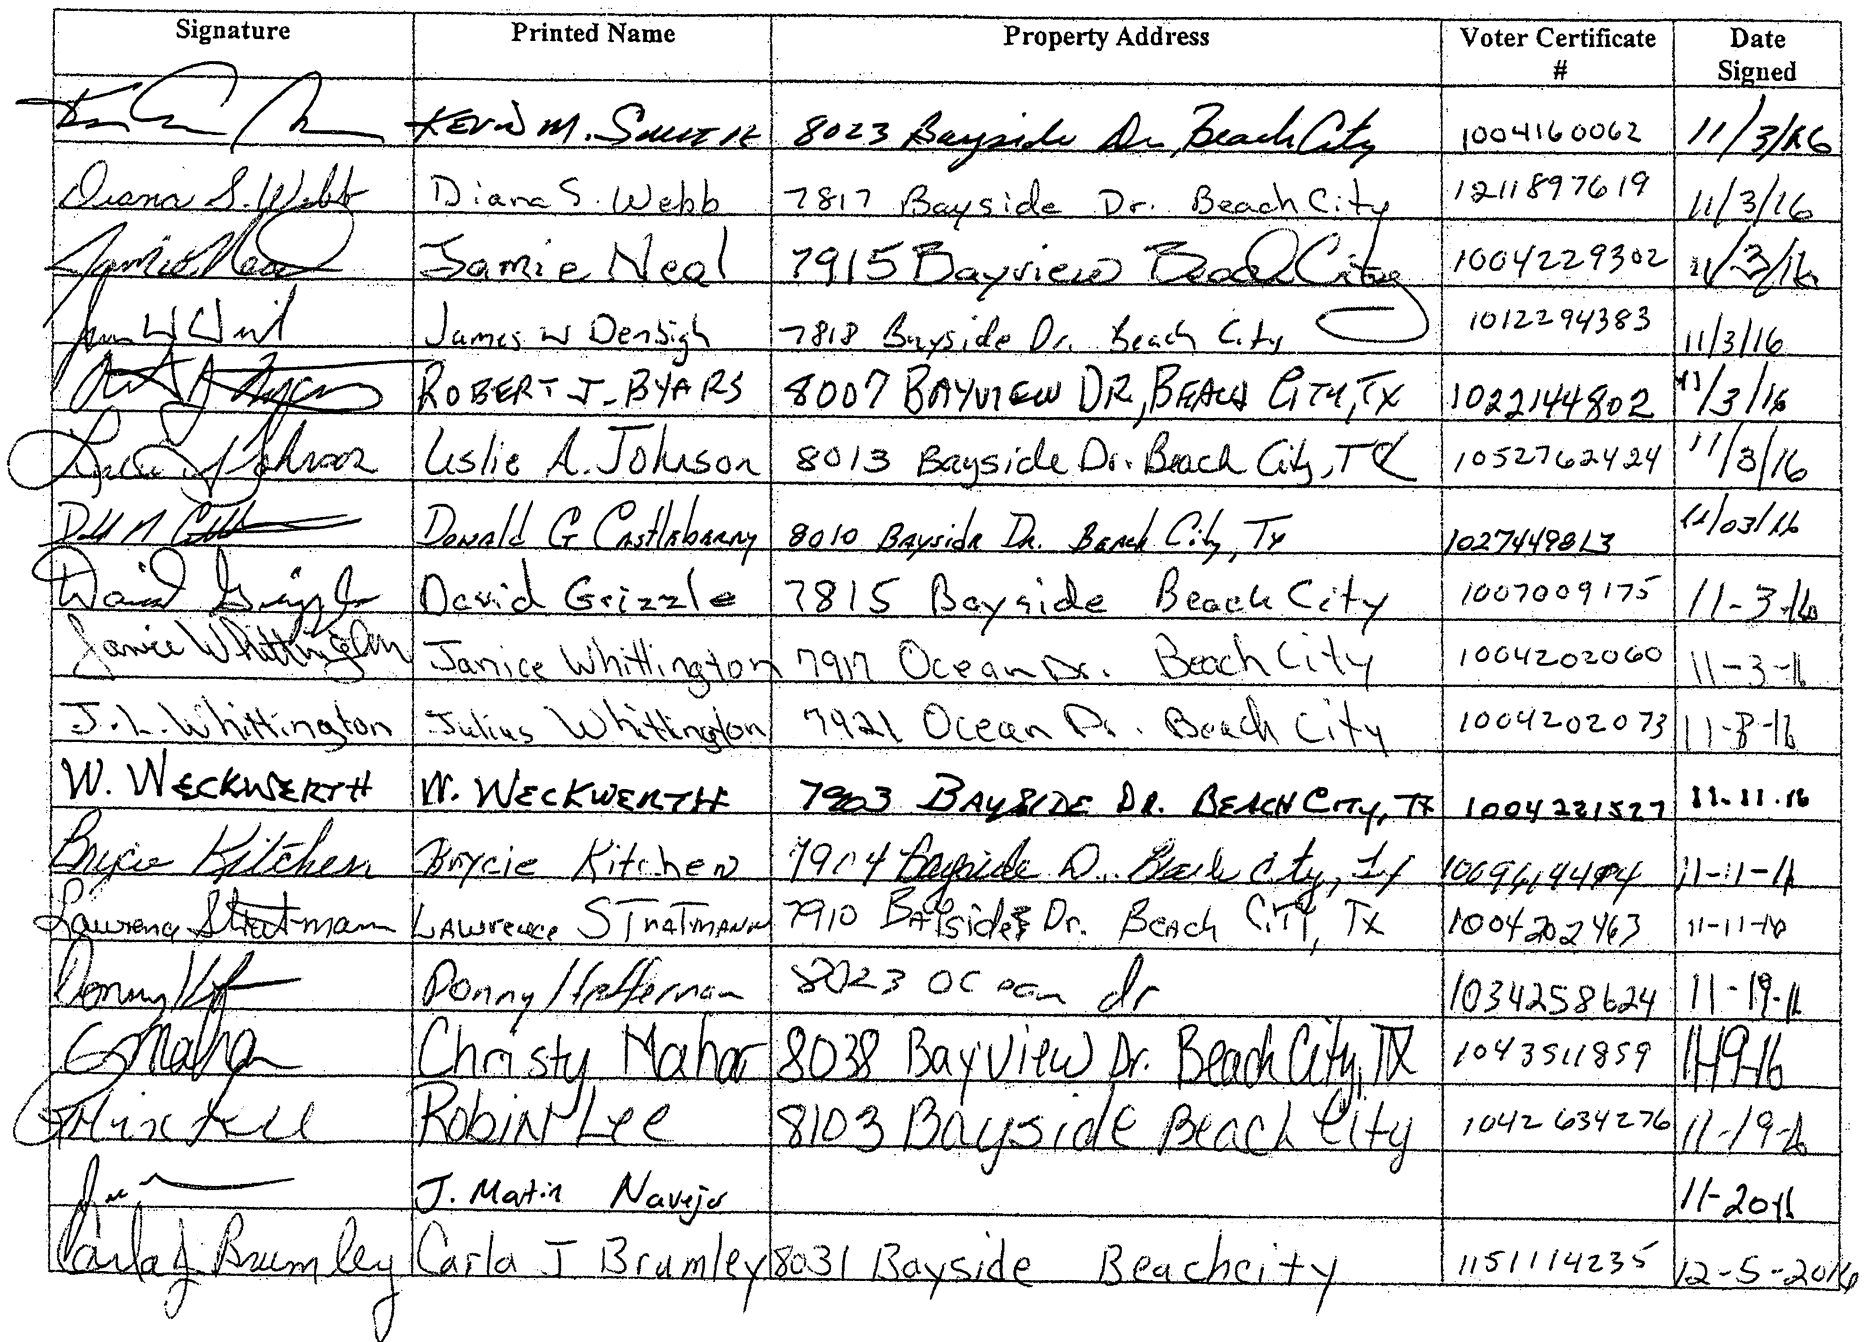 Signature Printed Name Property Address Voter Certificate # Date Signed
Kevin M. Smith 8023 Bayside Dr, Beach City 1004160062 11/3/16
Diana S. Webb Diana S. Webb 7817 Bayside Dr. Beach City 1211897619 11/3/16
Jamie Neal Jamie Neal 7915 Bayview Beach City 1004229302 11/3/16
James W Denbigh 7818 Bayside Dr. Beach City 1012294383 11/3/16
ROBERT J. BYARS 8007 BAYVIEW DR, BEACH CITY, TX 1022144802 11/3/16
Leslie A. Johnson Leslie A. Johnson 8013 Bayside Dr. Beach City, TX 1052762424 11/3/16
Donald G Castleberry 8010 Bayside Dr. Beach City, Tx 1027449813 11/03/16
David Grizzle David Grizzle 7815 Bayside Beach City 1007009175 11-3-16
Janice Whittington Janice Whittington 7917 Ocean Dr. Beach City 1004202060 11-3-16
J. L. Whittington Julius Whittington 7921 Ocean Dr. Beach City 1004202073 11-8-16
W. WECKWERTH W. WECKWERTH 7903 BAYSIDE DR. BEACH CITY, TX 1004221527 11-11-16
Brycie Kitchen Brycie Kitchen Bayside D. Beach City, Tx 11-11-16
Lawrence Stratmann Lawrence STratmann 7910 Bayside Dr. Beach CiTY, Tx 1004202463 11-11-16
Donny Heffernan 8023 Ocean dr 1034258624 11-19-16
C Mahar Christy Mahar 8038 Bayview Dr. Beach City, TX 1043511859 11-19-16
Robin Lee 8103 Bayside Beach City 1042634276 11-19-16
J. Matin Navejo 11-20-16
Carla J Brumley Carla J Brumley 8031 Bayside Beachcity 1151114235 12-5-2016